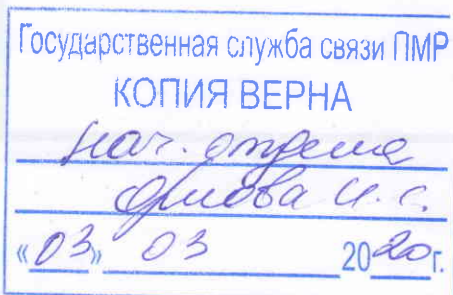 Государственная служба связи ПМР
КОПИЯ ВЕРНА
нач. отдела
Орлова И. С.
«03» 03 2020г.